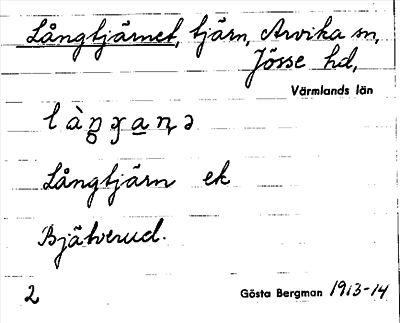 Långtjärnet, tjärn, Arvika sn,
Jösse hd,
Värmlands län
Långtjärn ek
Bjälverud.
2 Gösta Bergman 1913-14